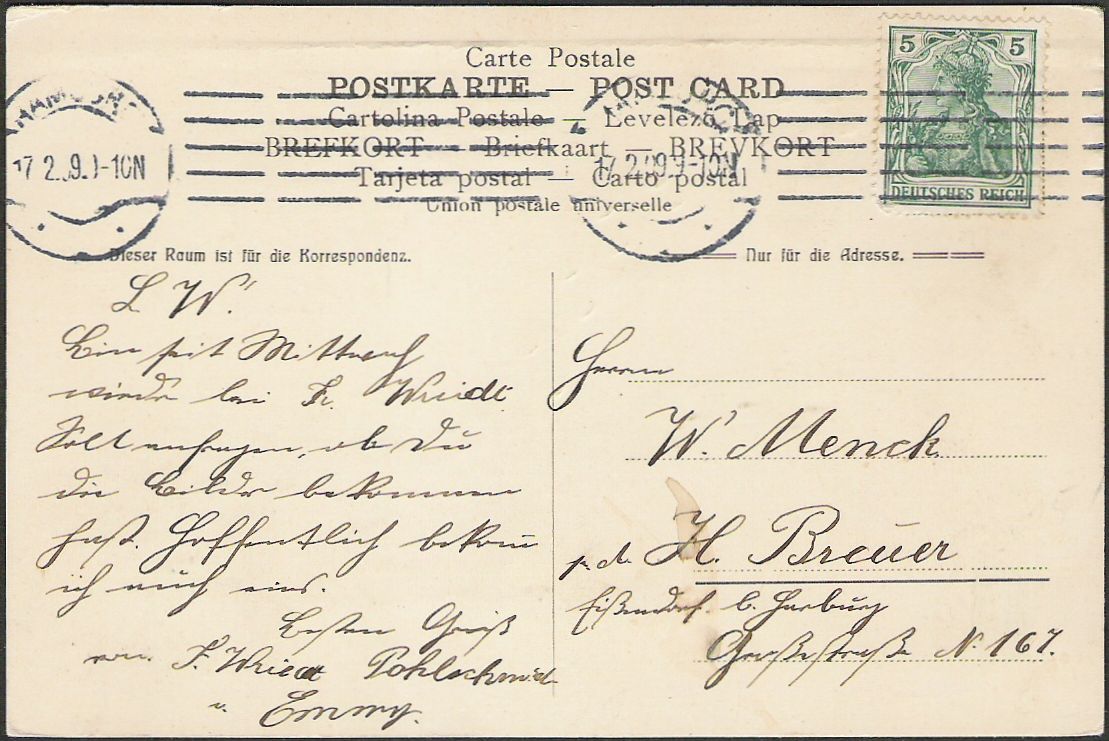 Carte Postale
POSTKARTE — POST CARD
Cartolina Postale — Levelező Lap
BREFKORT — Briefkaart — BREVKORT
Tarjeta postal — Carto postal
Union postale universelle
17.2.09. 9-10N
17.2.09. 9-10N
5 5
DEUTSCHES REICH
Dieser Raum ist für die Korrespondenz.
L. W!
Bin seit Mittwoch
wieder bei Fr. Wriedt
Solt anfragen, ob Du
die Bilder bekommen
hast. Hoffentlich bekom
ich auch eins.
Besten Gruß
von F. Wriedt Pohlschmidt
u. Emmy.
Nur für die Adresse.
Herrn
W. Menck
H. Breuer
Eißendorf b. Harburg
Großestraße N. 167.